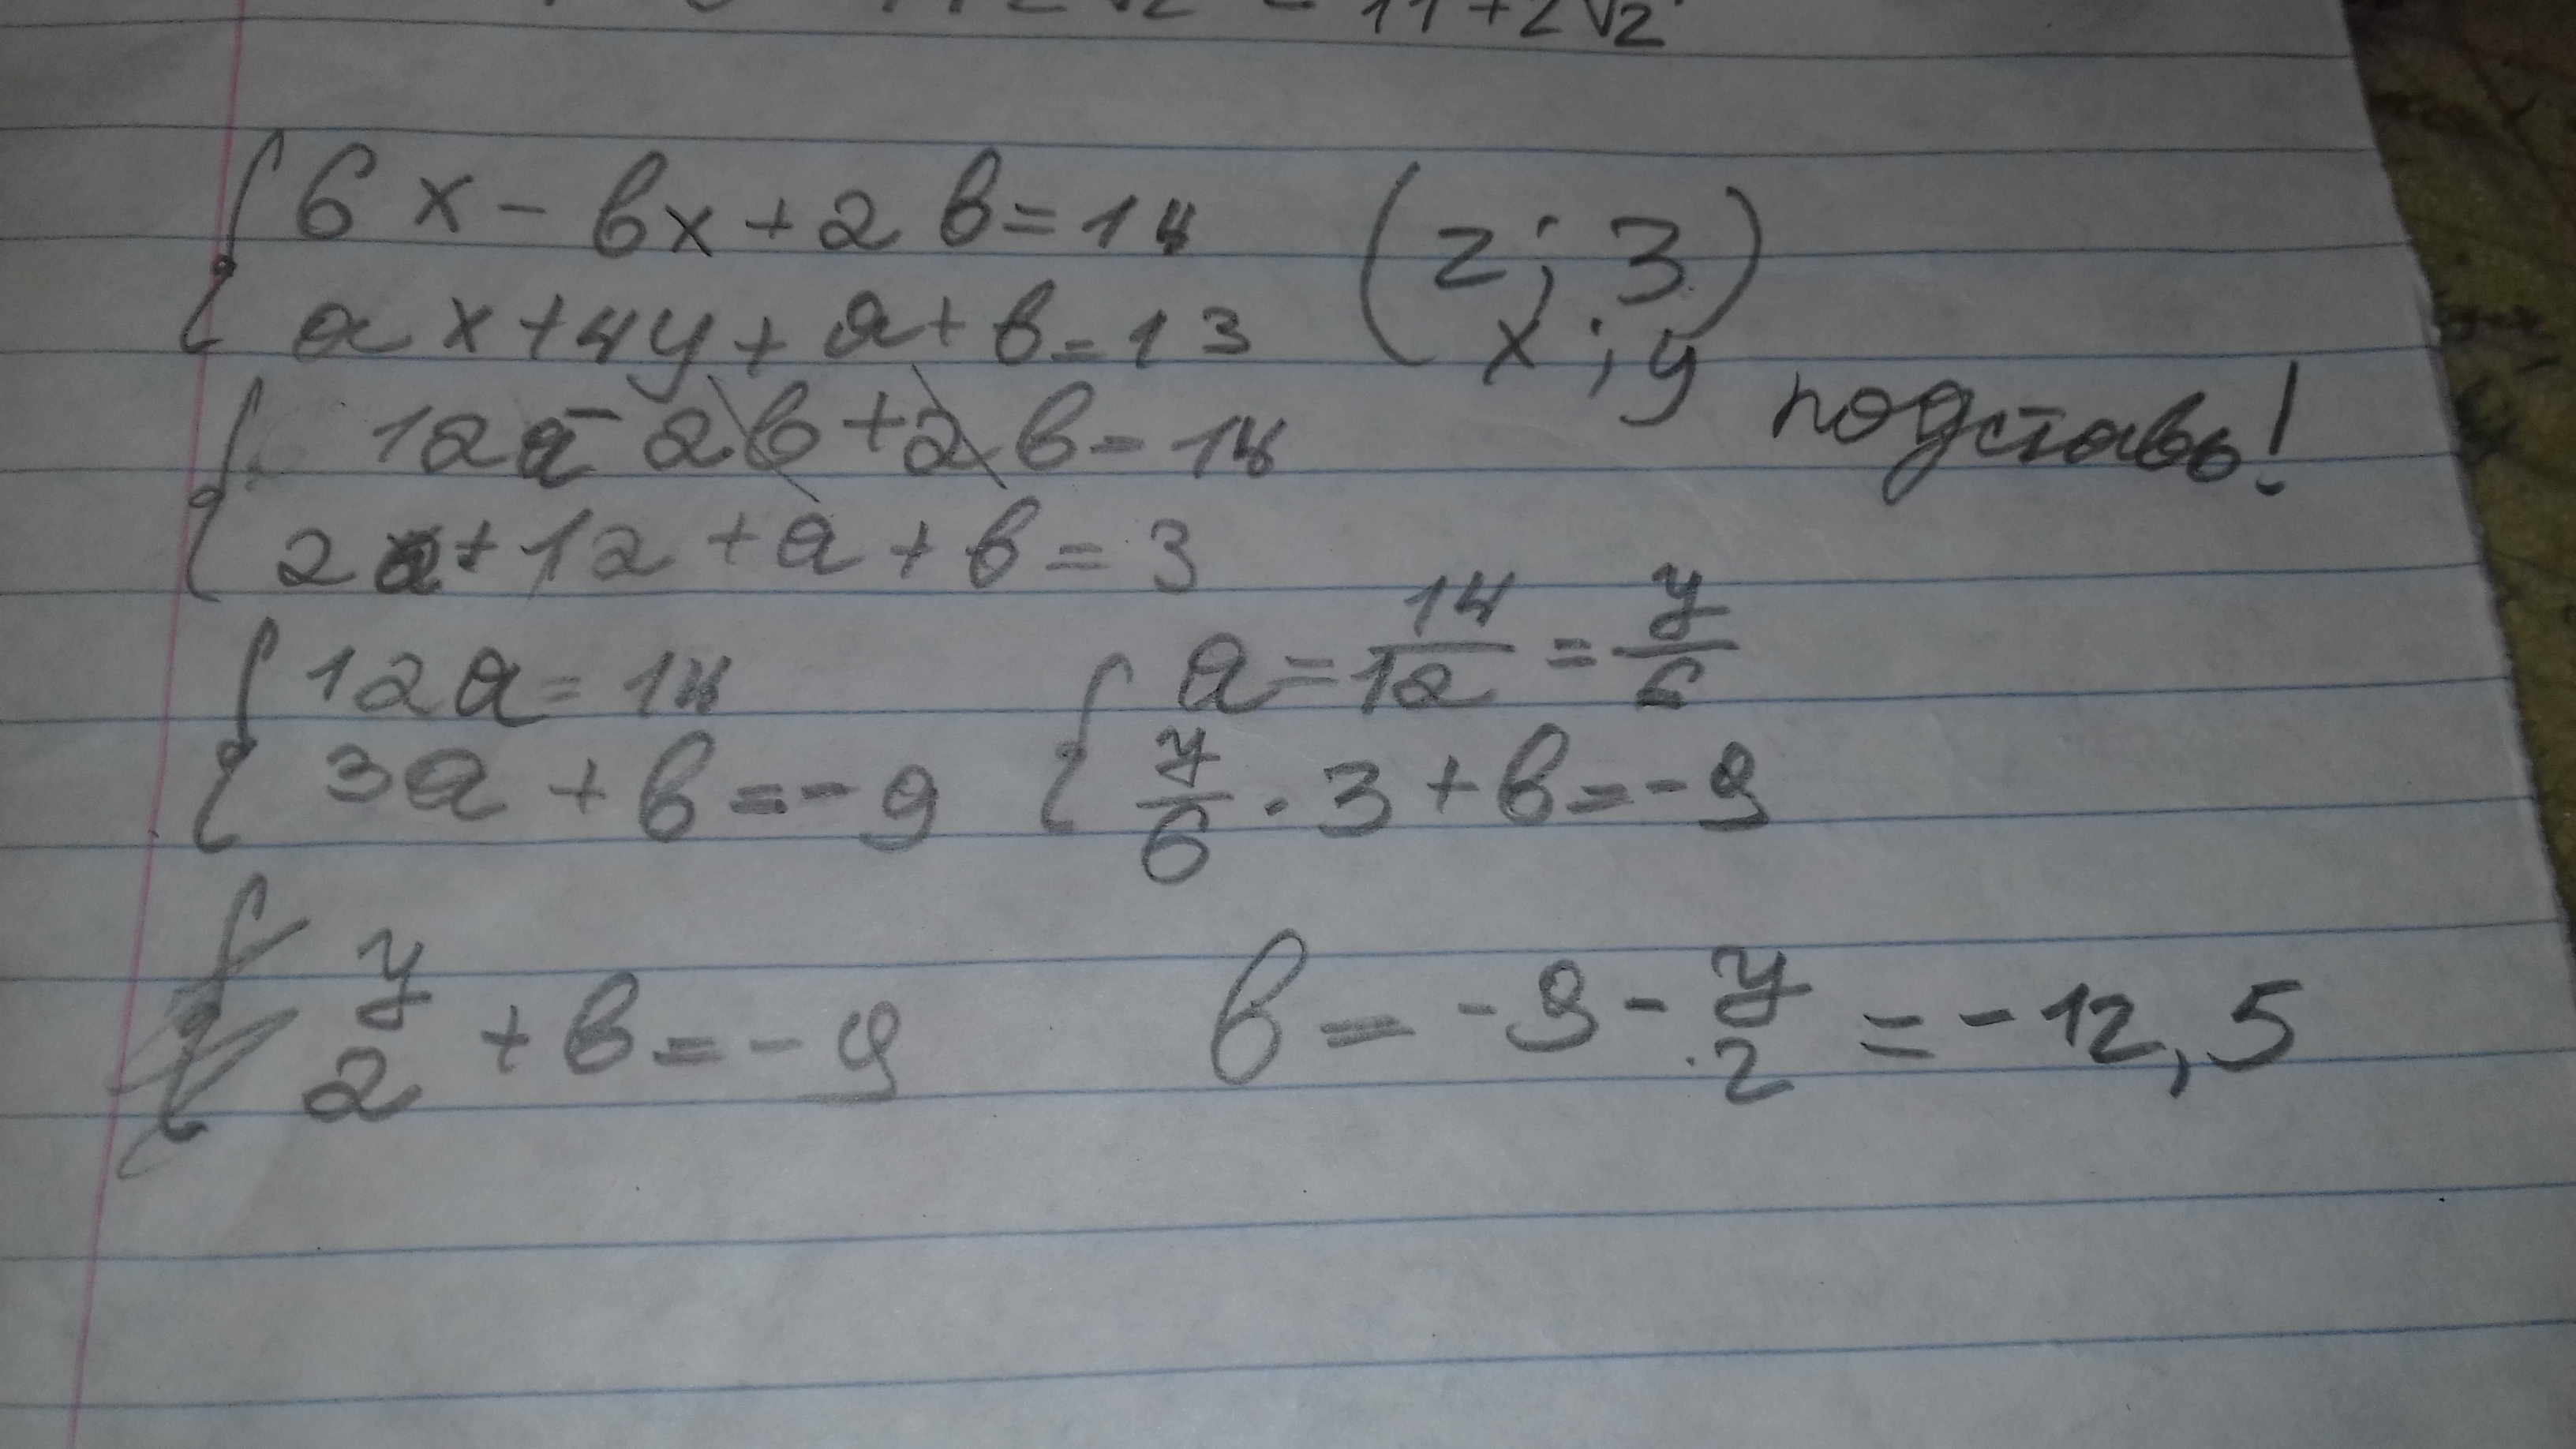 11 + 2√2
{ 6x - bx + 2b = 14 (2; 3)
ax + 4y + a + b = 13 x; y
подставь!
{ 12a - 2b + 2b = 14
2a + 12 + a + b = 3
{ 12a = 14 { a = 14/12 = 7/6
3a + b = -9 7/6 · 3 + b = -9
7/2 + b = -9 b = -9 - 7/2 = -12,5